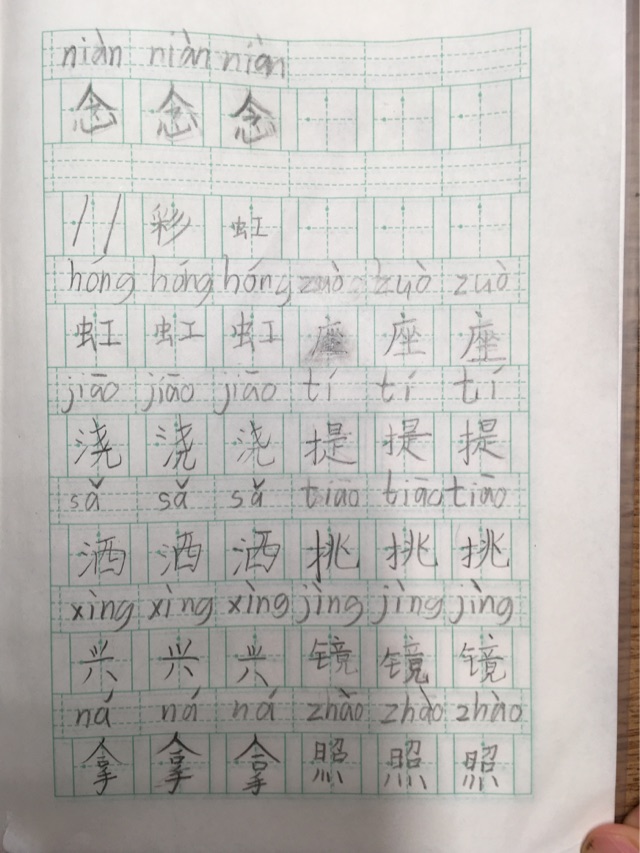 niàn niàn niàn
念 念 念
11 彩 虹
hóng hóng hóng zuò zuò zuò
虹 虹 虹 座 座 座
jiāo jiāo jiāo tí tí tí
浇 浇 浇 提 提 提
sǎ sǎ sǎ tiāo tiāo tiāo
洒 洒 洒 挑 挑 挑
xìng xìng xìng jìng jìng jìng
兴 兴 兴 镜 镜 镜
ná ná ná zhào zhào zhào
拿 拿 拿 照 照 照